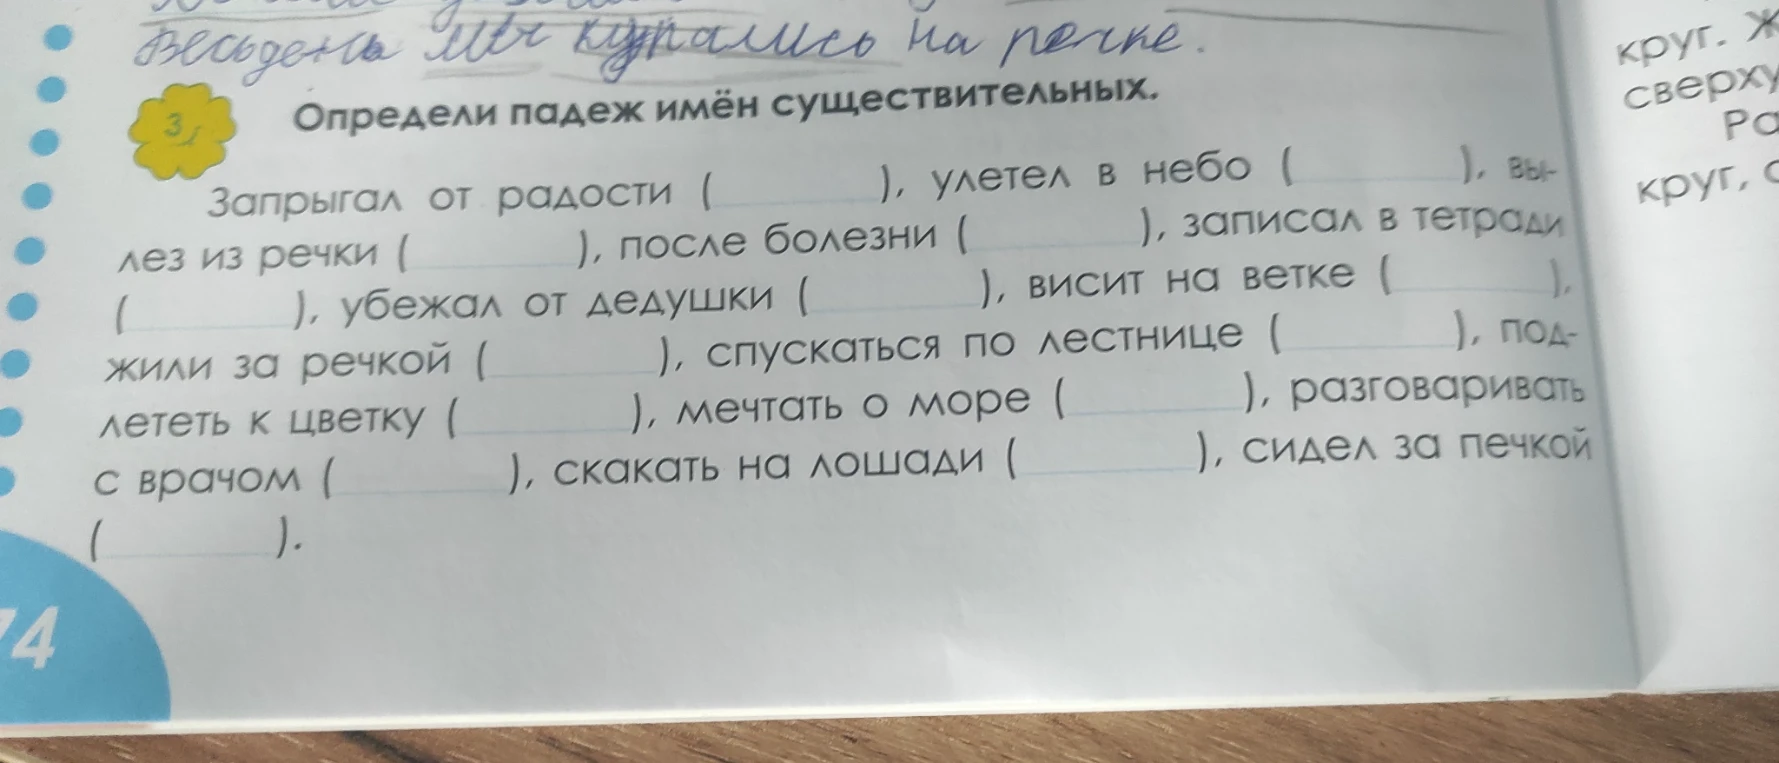 Весь день мы купались на речке.
3,
Определи падеж имён существительных.
Запрыгал от радости (          ), улетел в небо (          ), вы-
лез из речки (          ), после болезни (          ), записал в тетради
(          ), убежал от дедушки (          ), висит на ветке (          ),
жили за речкой (          ), спускаться по лестнице (          ), под-
лететь к цветку (          ), мечтать о море (          ), разговаривать
с врачом (          ), скакать на лошади (          ), сидел за печкой
(          ).
74
круг. Ж
сверху
Ра
круг, с